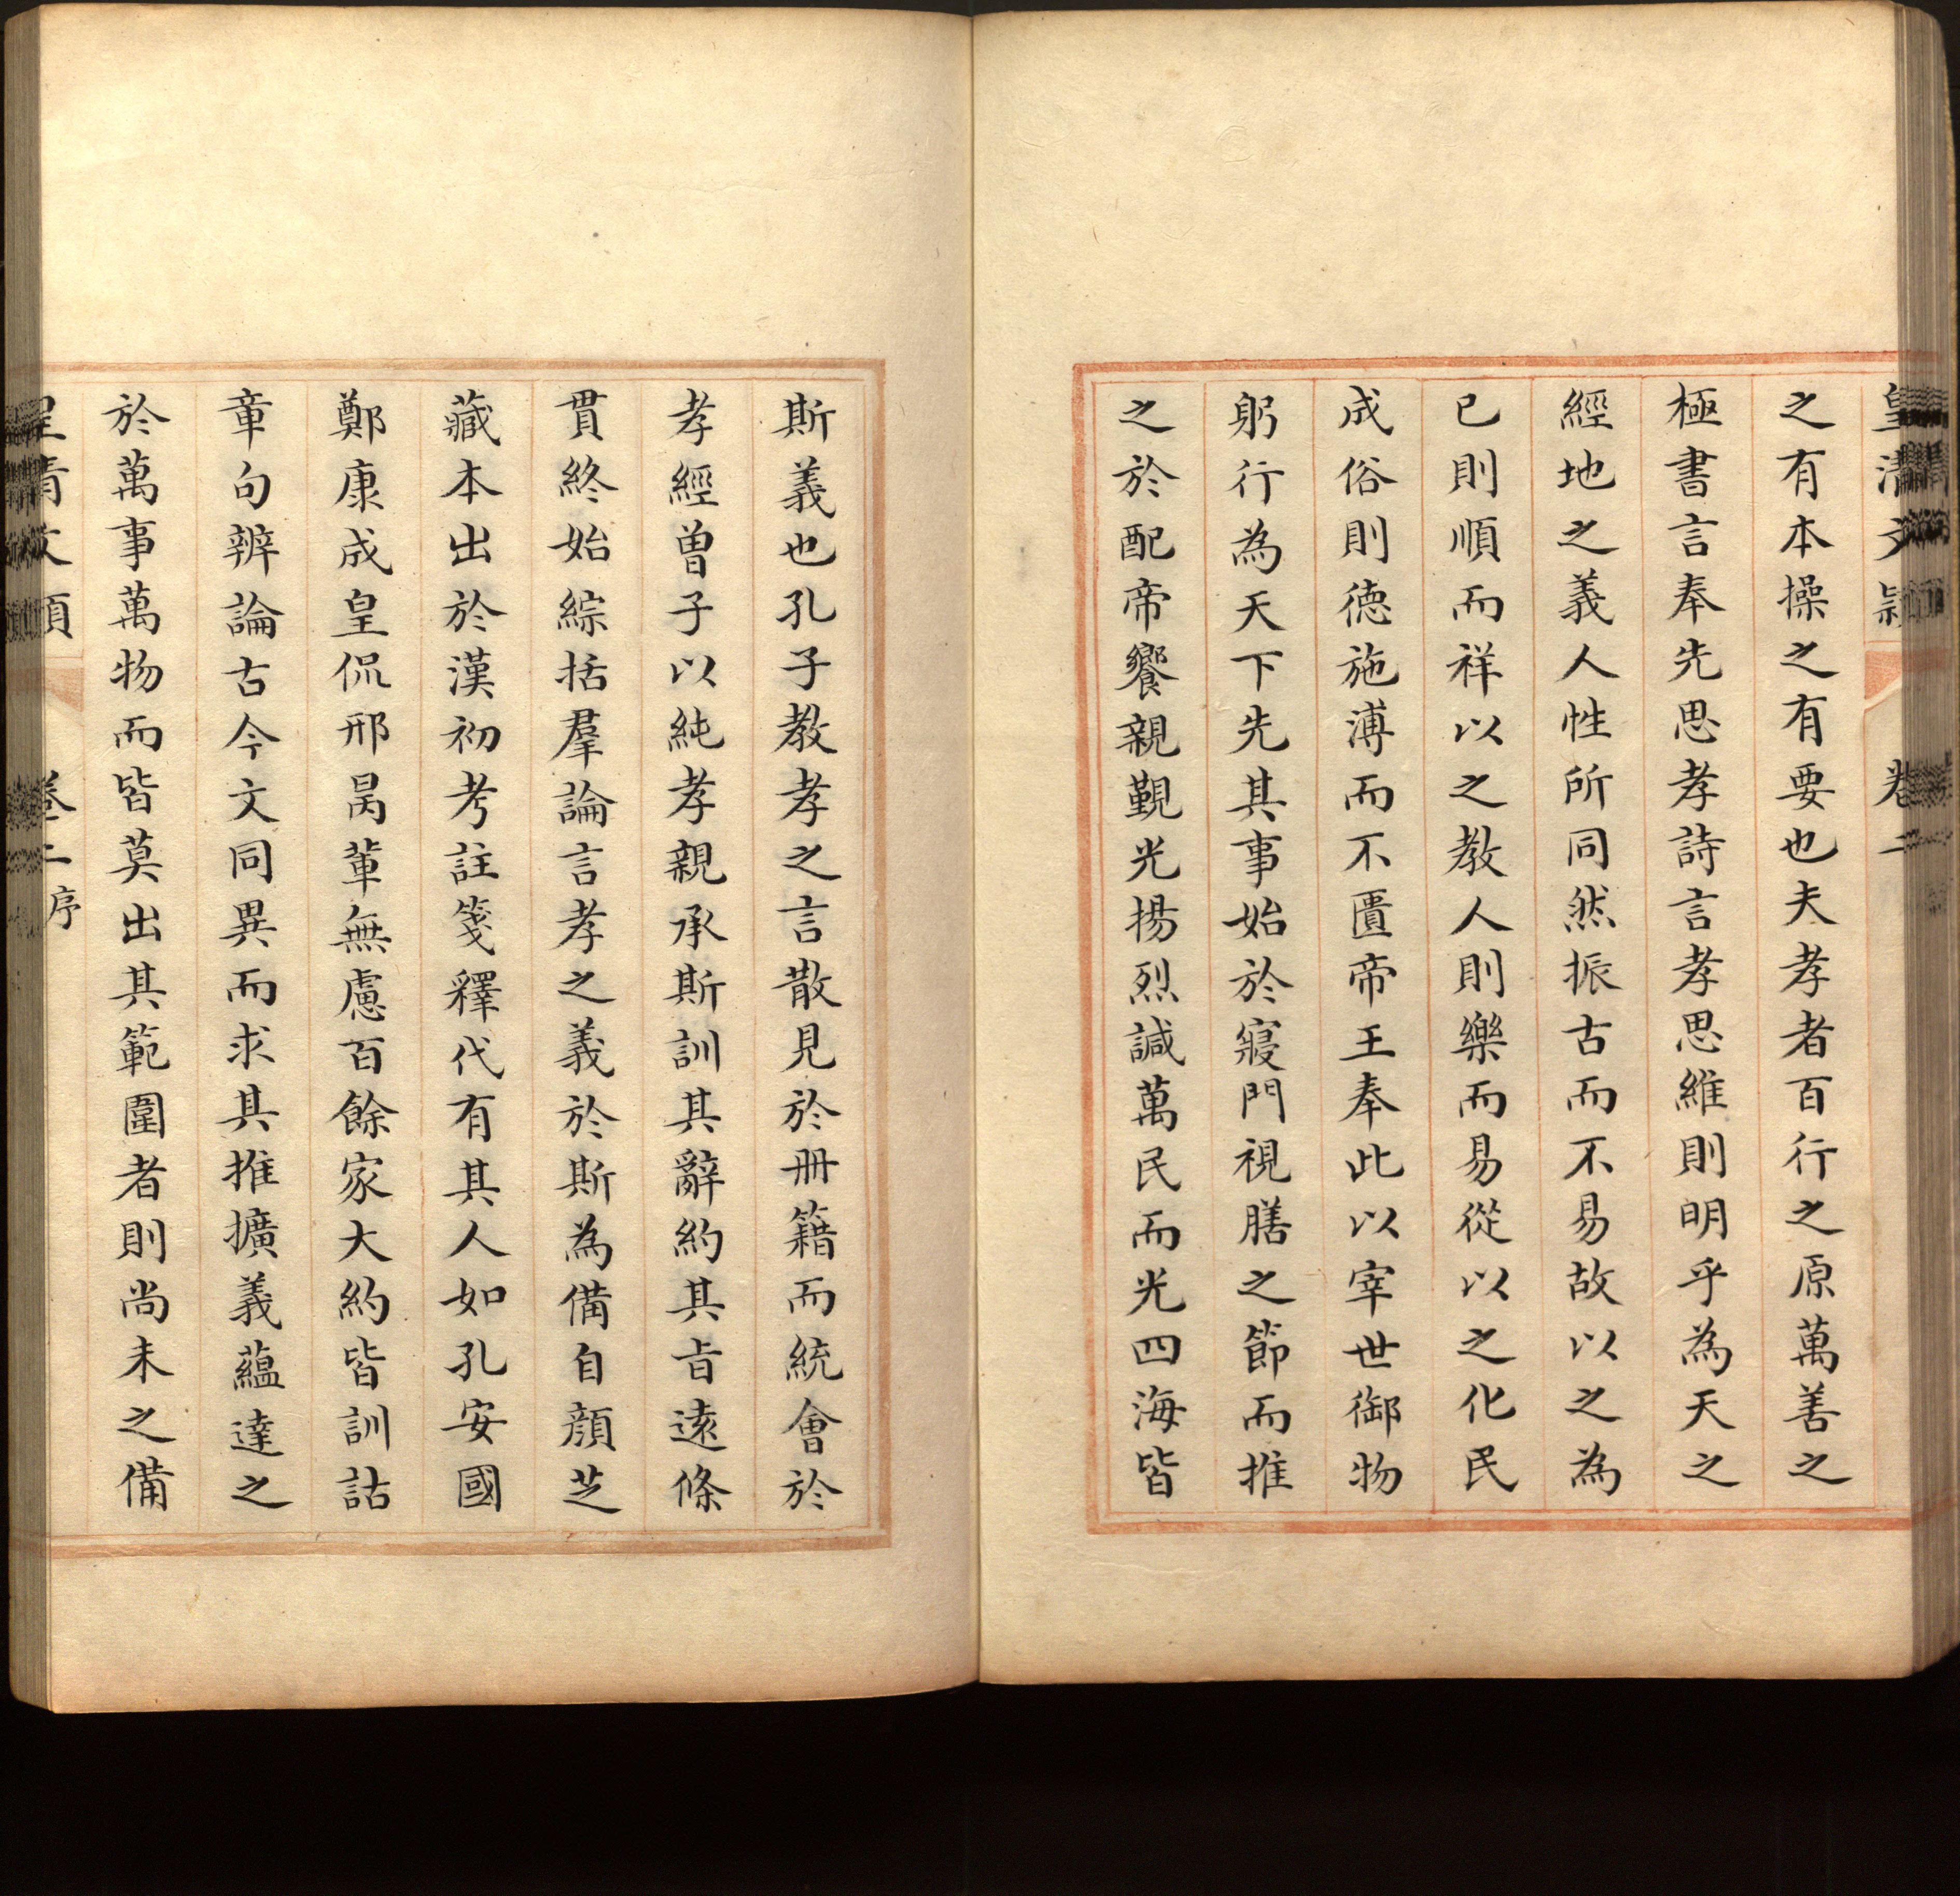 皇清文穎 卷二
之有本操之有要也夫孝者百行之原萬善之
極書言奉先思孝詩言孝思維則明乎為天之
經地之義人性所同然振古而不易故以之為
已則順而祥以之教人則樂而易從以之化民
成俗則德施溥而不匱帝王奉此以宰世御物
躬行為天下先其事始於寢門視膳之節而推
之於配帝饗親覲光揚烈諴萬民而光四海皆
斯義也孔子教孝之言散見於冊籍而統會於
孝經曾子以純孝親承斯訓其辭約其旨遠條
貫終始綜括羣論言孝之義於斯為備自顏芝
藏本出於漢初考註箋釋代有其人如孔安國
鄭康成皇侃邢昺輩無慮百餘家大約皆訓詁
章句辨論古今文同異而求其推擴義蘊達之
於萬事萬物而皆莫出其範圍者則尚未之備
皇清文穎 卷二序